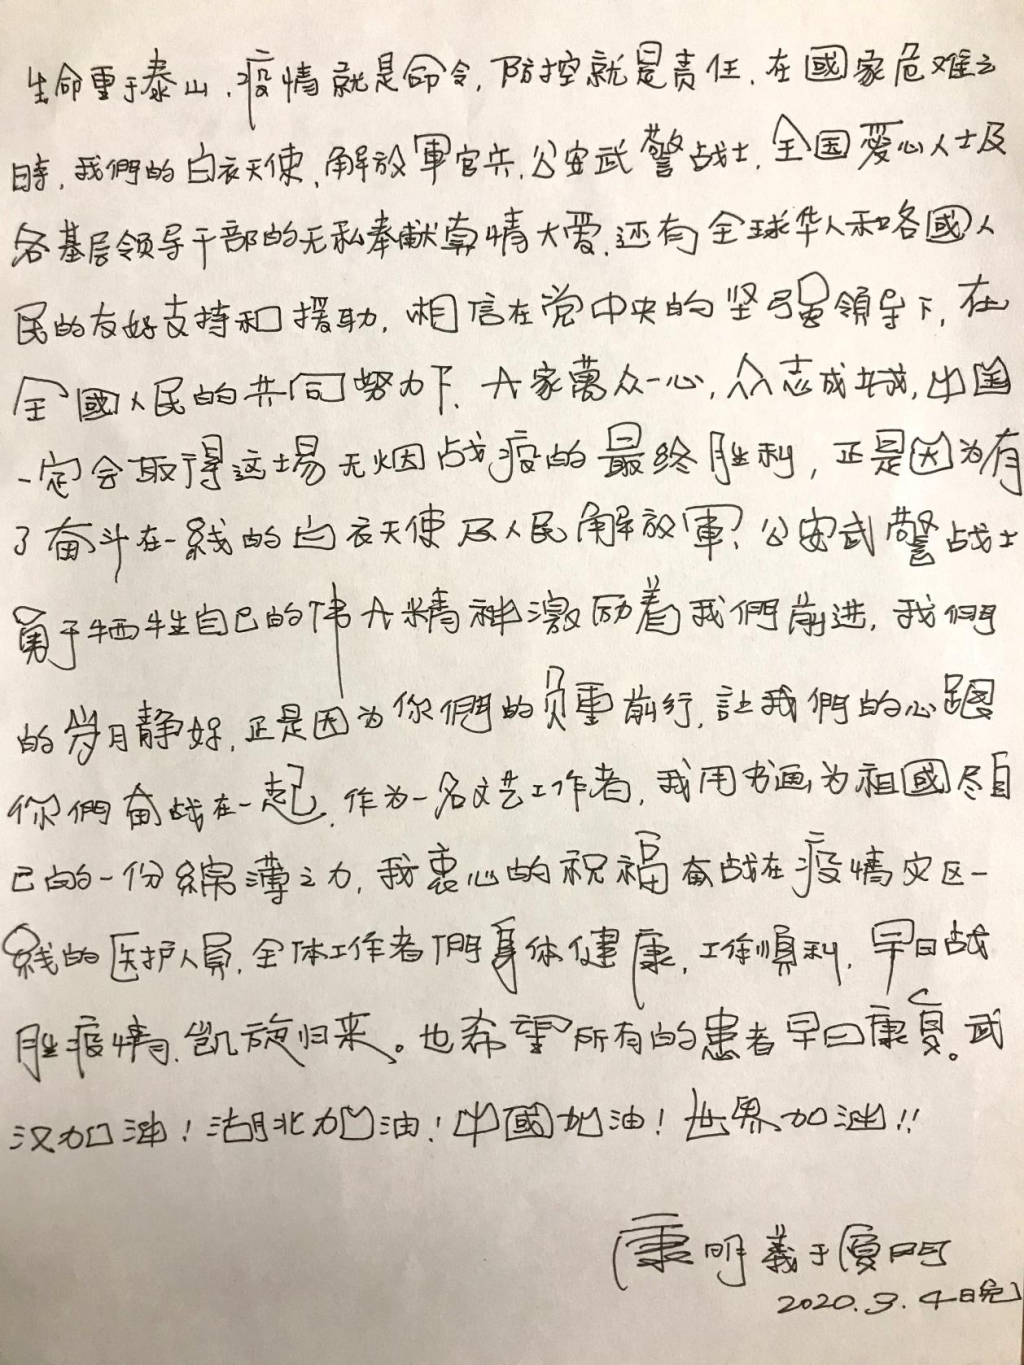 生命重于泰山，疫情就是命令，防控就是责任，在國家危难之
時，我們的白衣天使、解放軍官兵、公安武警战士，全国爱心人士及
各基层领导干部的无私奉献真情大爱，还有全球华人和各國人
民的友好支持和援助，相信在党中央的坚强領导下，在
全國人民的共同努力下，大家萬众一心，众志成城，中国
一定会取得这場无烟战疫的最终胜利，正是因为有
了奋斗在一線的白衣天使及人民解放軍？公安武警战士
勇于牺牲自己的伟大精神激励着我們前进，我們
的岁月静好，正是因为你們的负重前行，让我們的心跟
你們奋战在一起，作为一名文艺工作者，我用书画为祖國尽自
己的一份綿薄之力，我衷心的祝福奋战在疫情灾区一
線的医护人員，全体工作者們身体健康，工作順利，早日战
胜疫情，凯旋归来。也希望所有的患者早日康复。武
汉加油！湖北加油！中國加油！世界加油！！
康明義于厦門
2020.3.4日晚